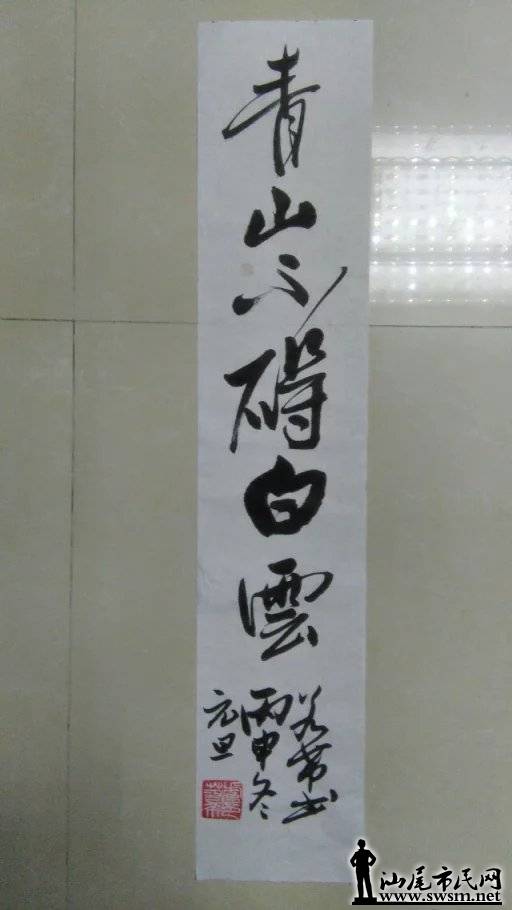 青山不碍白雲
丙申冬
元旦
汕尾市民网
www.swsm.net